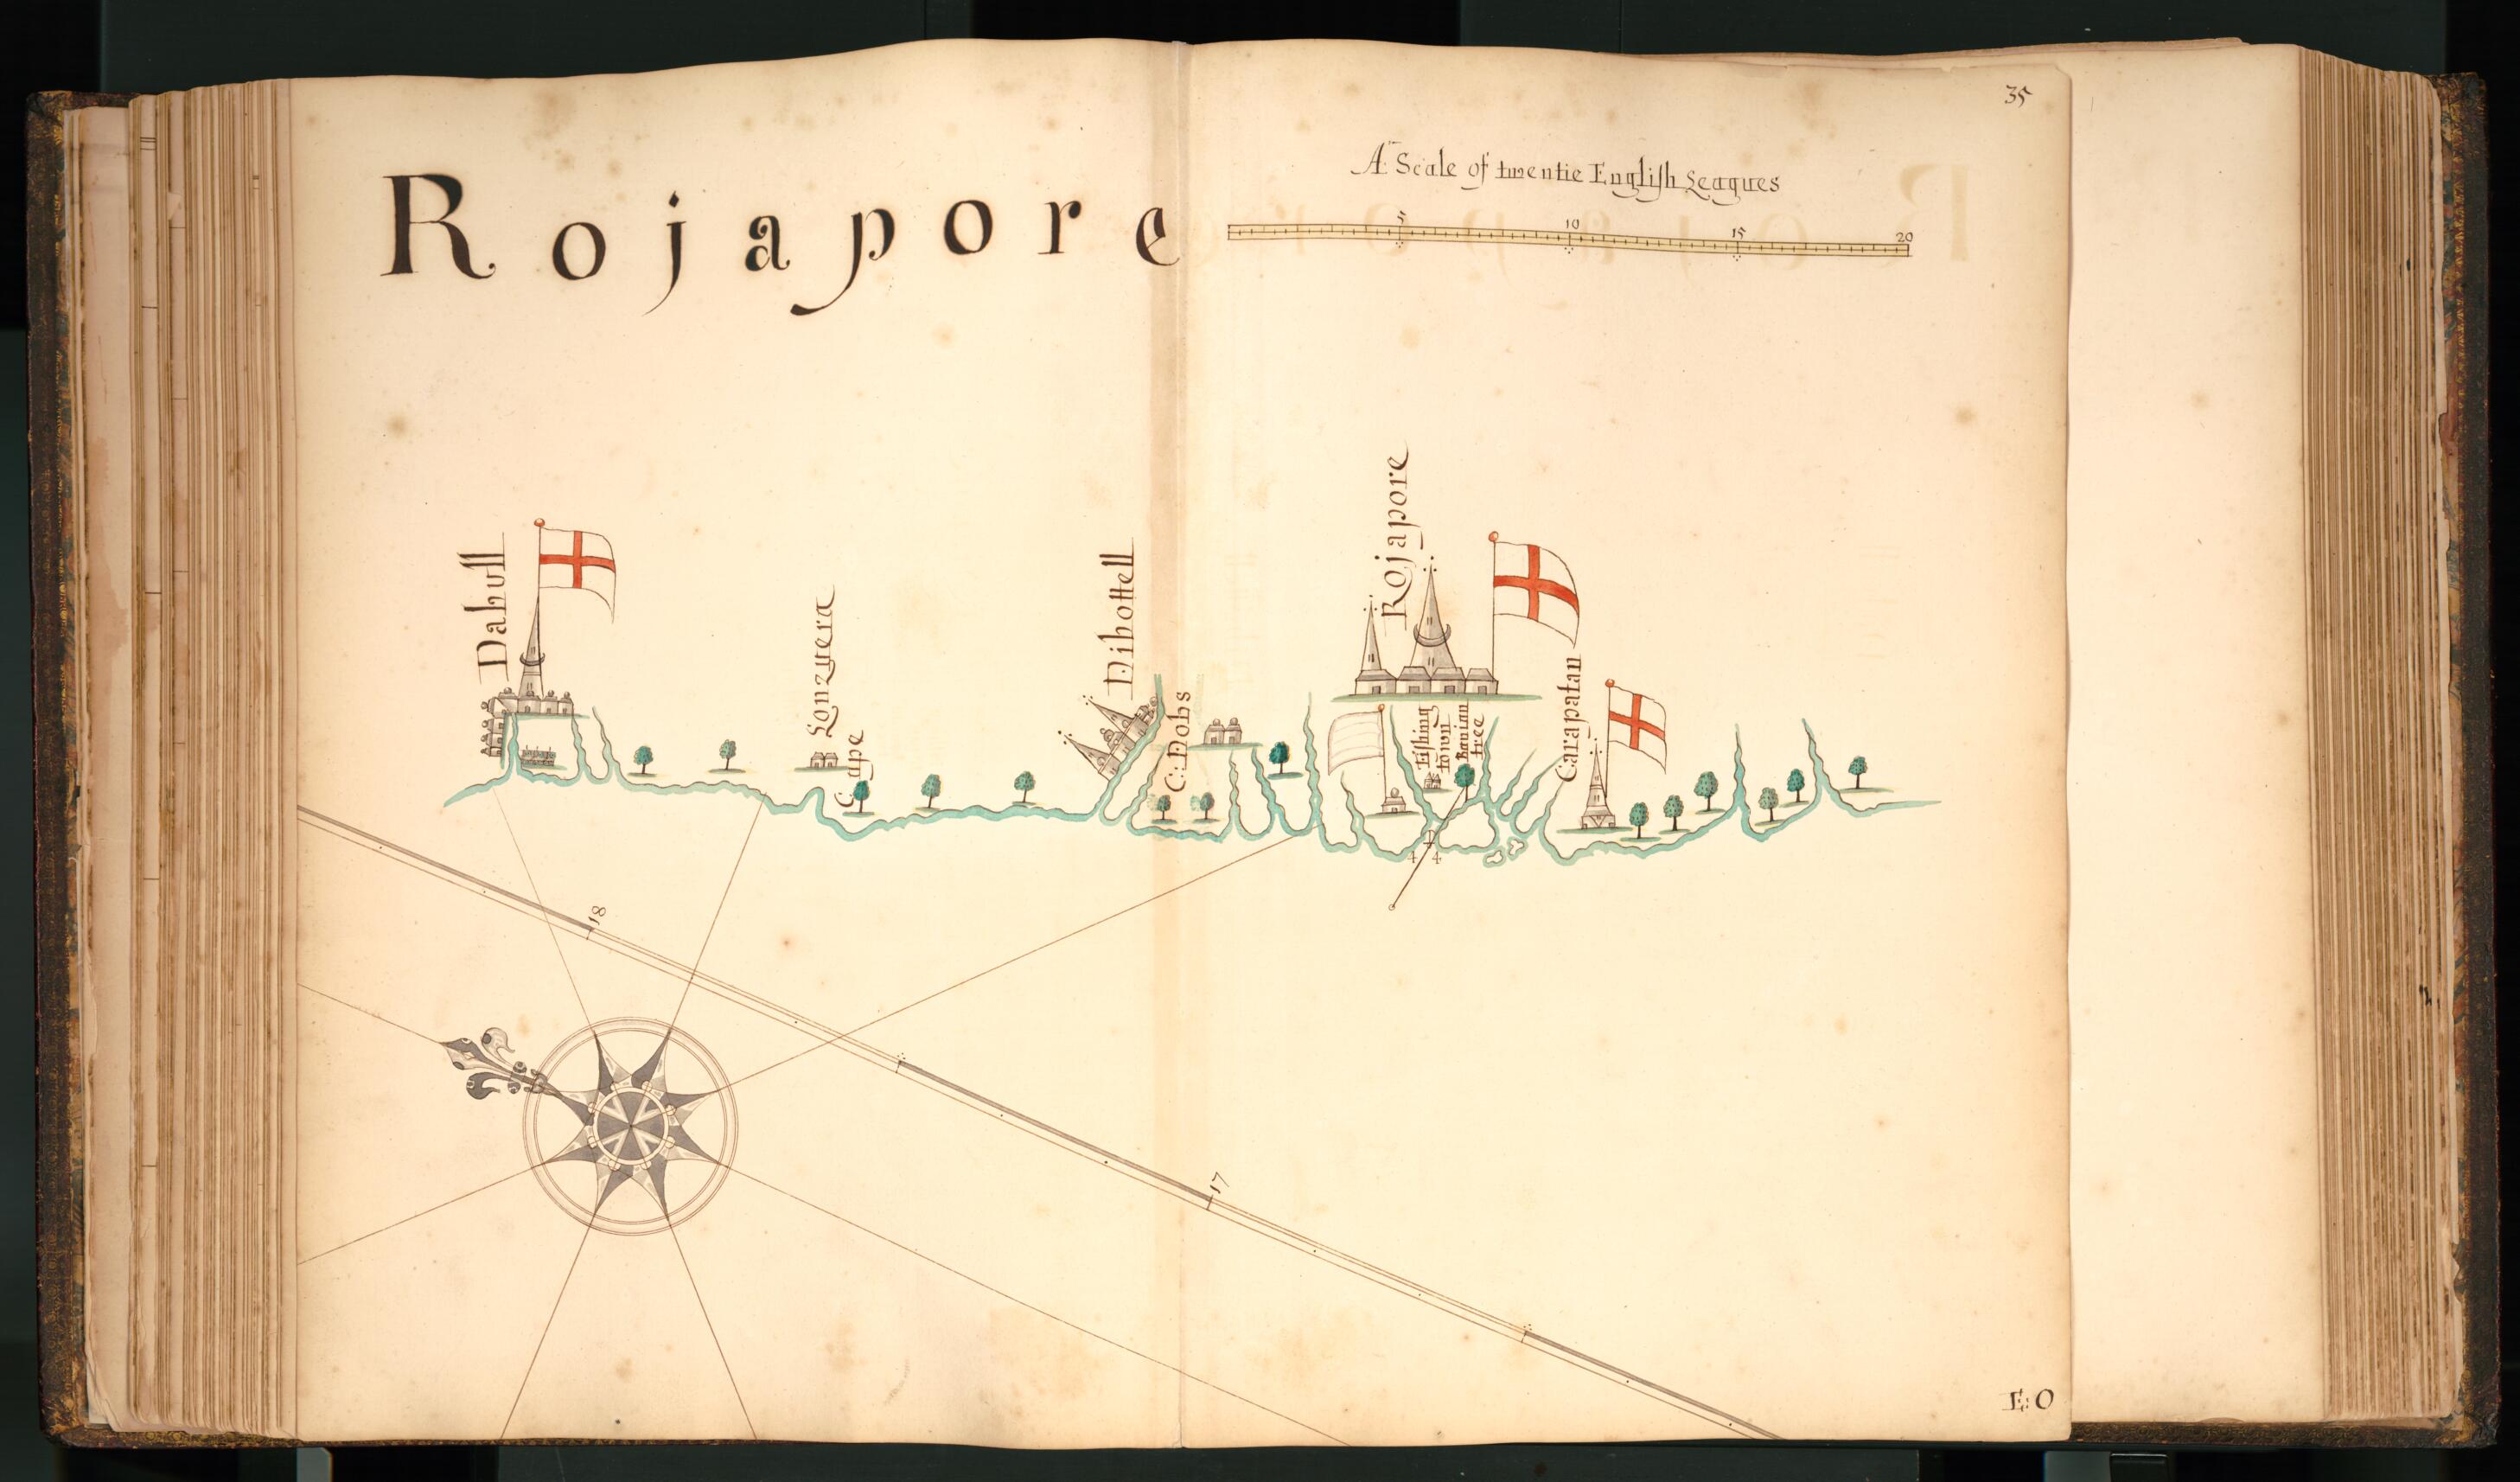 35
Rojapore
A Scale of twentie English Leagues
5 10 15 20
Dabull
Cape
Nibottell
C: Dobs
Rojapore
Fishing
town
Banian
tree
Carapatan
4 4
18
17
E: O